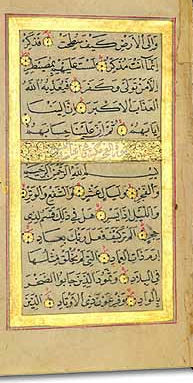 وَإِلَى الْأَرْضِ كَيْفَ سُطِحَتْ فَذَكِّرْ
إِنَّمَا أَنْتَ مُذَكِّرٌ لَسْتَ عَلَيْهِمْ بِمُصَيْطِرٍ
إِلَّا مَنْ تَوَلَّى وَكَفَرَ فَيُعَذِّبُهُ اللَّهُ
الْعَذَابَ الْأَكْبَرَ إِنَّ إِلَيْنَا
إِيَابَهُمْ ثُمَّ إِنَّ عَلَيْنَا حِسَابَهُمْ
بِسْمِ اللَّهِ الرَّحْمَنِ الرَّحِيمِ
وَالْفَجْرِ وَلَيَالٍ عَشْرٍ وَالشَّفْعِ وَالْوَتْرِ
وَاللَّيْلِ إِذَا يَسْرِ هَلْ فِي ذَلِكَ قَسَمٌ لِذِي
حِجْرٍ أَلَمْ تَرَ كَيْفَ فَعَلَ رَبُّكَ بِعَادٍ
إِرَمَ ذَاتِ الْعِمَادِ الَّتِي لَمْ يُخْلَقْ مِثْلُهَا
فِي الْبِلَادِ وَثَمُودَ الَّذِينَ جَابُوا الصَّخْرَ
بِالْوَادِ وَفِرْعَوْنَ ذِي الْأَوْتَادِ الَّذِينَ